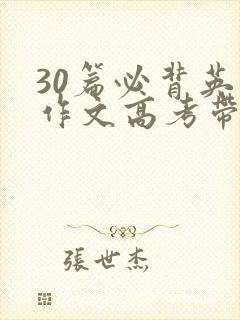 30篇必背英
作文高考带
张世杰